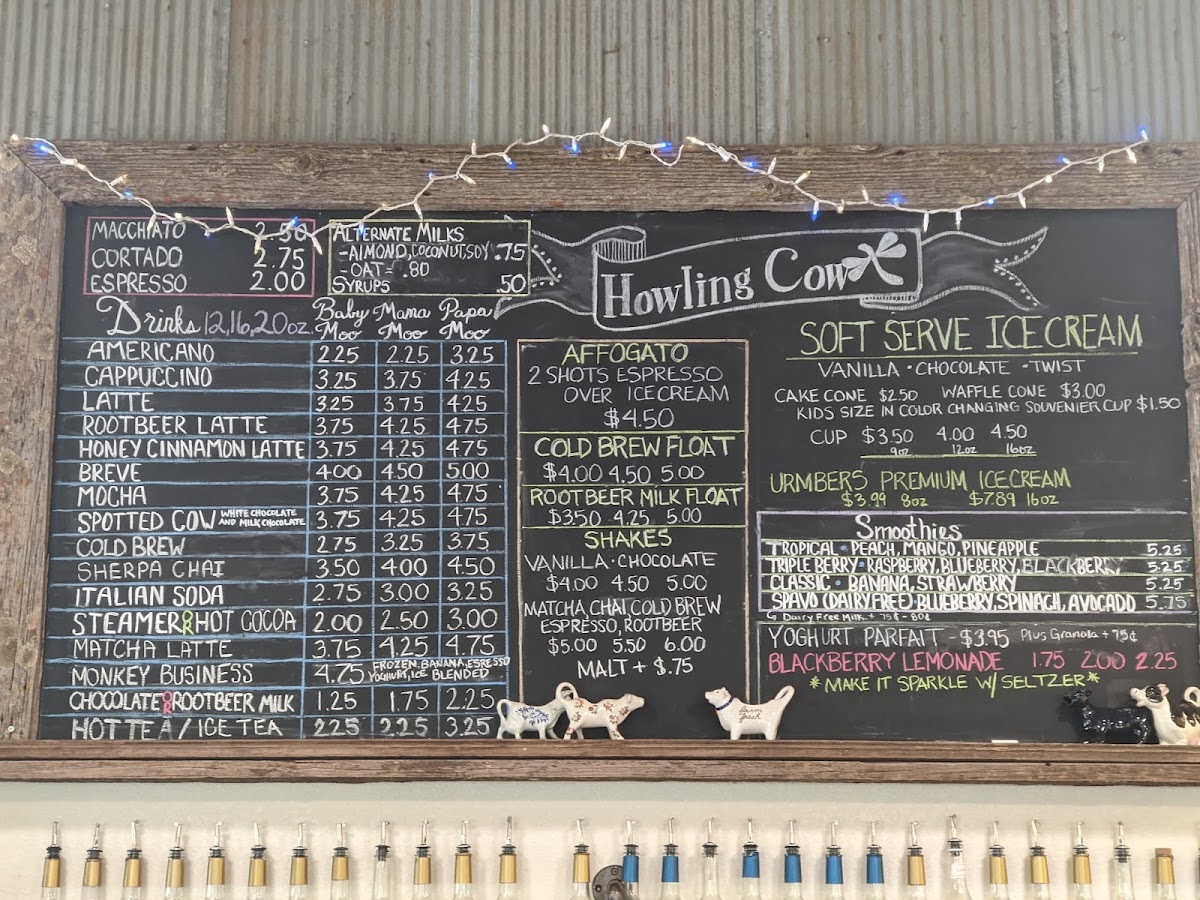 MACCHIATO 2.50
CORTADO 2.75
ESPRESSO 2.00
ALTERNATE MILKS
-ALMOND, COCONUT, SOY .75
-OAT= .80
SYRUPS .50
Howling Cow
Drinks 12,16,20oz. Baby Moo Mama Moo Papa Moo
AMERICANO 2.25 2.25 3.25
CAPPUCCINO 3.25 3.75 4.25
LATTE 3.25 3.75 4.25
ROOTBEER LATTE 3.75 4.25 4.75
HONEY CINNAMON LATTE 3.75 4.25 4.75
BREVE 4.00 4.50 5.00
MOCHA 3.75 4.25 4.75
SPOTTED COW WHITE CHOCOLATE AND MILK CHOCOLATE 3.75 4.25 4.75
COLD BREW 2.75 3.25 3.75
SHERPA CHAI 3.50 4.00 4.50
ITALIAN SODA 2.75 3.00 3.25
STEAMER & HOT COCOA 2.00 2.50 3.00
MATCHA LATTE 3.75 4.25 4.75
MONKEY BUSINESS 4.75 FROZEN, BANANA, ESRESSO YOGHURT, ICE BLENDED
CHOCOLATE & ROOTBEER MILK 1.25 1.75 2.25
HOT TEA / ICE TEA 2.25 2.25 3.25
AFFOGATO
2 SHOTS ESPRESSO
OVER ICE CREAM
$4.50
COLD BREW FLOAT
$4.00 4.50 5.00
ROOTBEER MILK FLOAT
$3.50 4.25 5.00
SHAKES
VANILLA · CHOCOLATE
$4.00 4.50 5.00
MATCHA, CHAI, COLD BREW
ESPRESSO, ROOTBEER
$5.00 5.50 6.00
MALT + $.75
SOFT SERVE ICE CREAM
VANILLA · CHOCOLATE · TWIST
CAKE CONE $2.50 WAFFLE CONE $3.00
KIDS SIZE IN COLOR CHANGING SOUVENIER CUP $1.50
CUP $3.50 4.00 4.50
9oz 12oz 16oz
URMBERS PREMIUM ICE CREAM
$3.99 8oz $7.89 16oz
Smoothies
TROPICAL · PEACH, MANGO, PINEAPPLE 5.25
TRIPLE BERRY · RASPBERRY, BLUEBERRY, BLACKBERRY 5.25
CLASSIC · BANANA, STRAWBERRY 5.25
SPAVO (DAIRY FREE) BLUEBERRY, SPINACH, AVOCADO 5.75
↳ Dairy Free Milk + 75¢ - 80¢
YOGHURT PARFAIT - $3.95 Plus Granola + 75¢
BLACKBERRY LEMONADE 1.75 2.00 2.25
*MAKE IT SPARKLE W/ SELTZER*
Farm Fresh